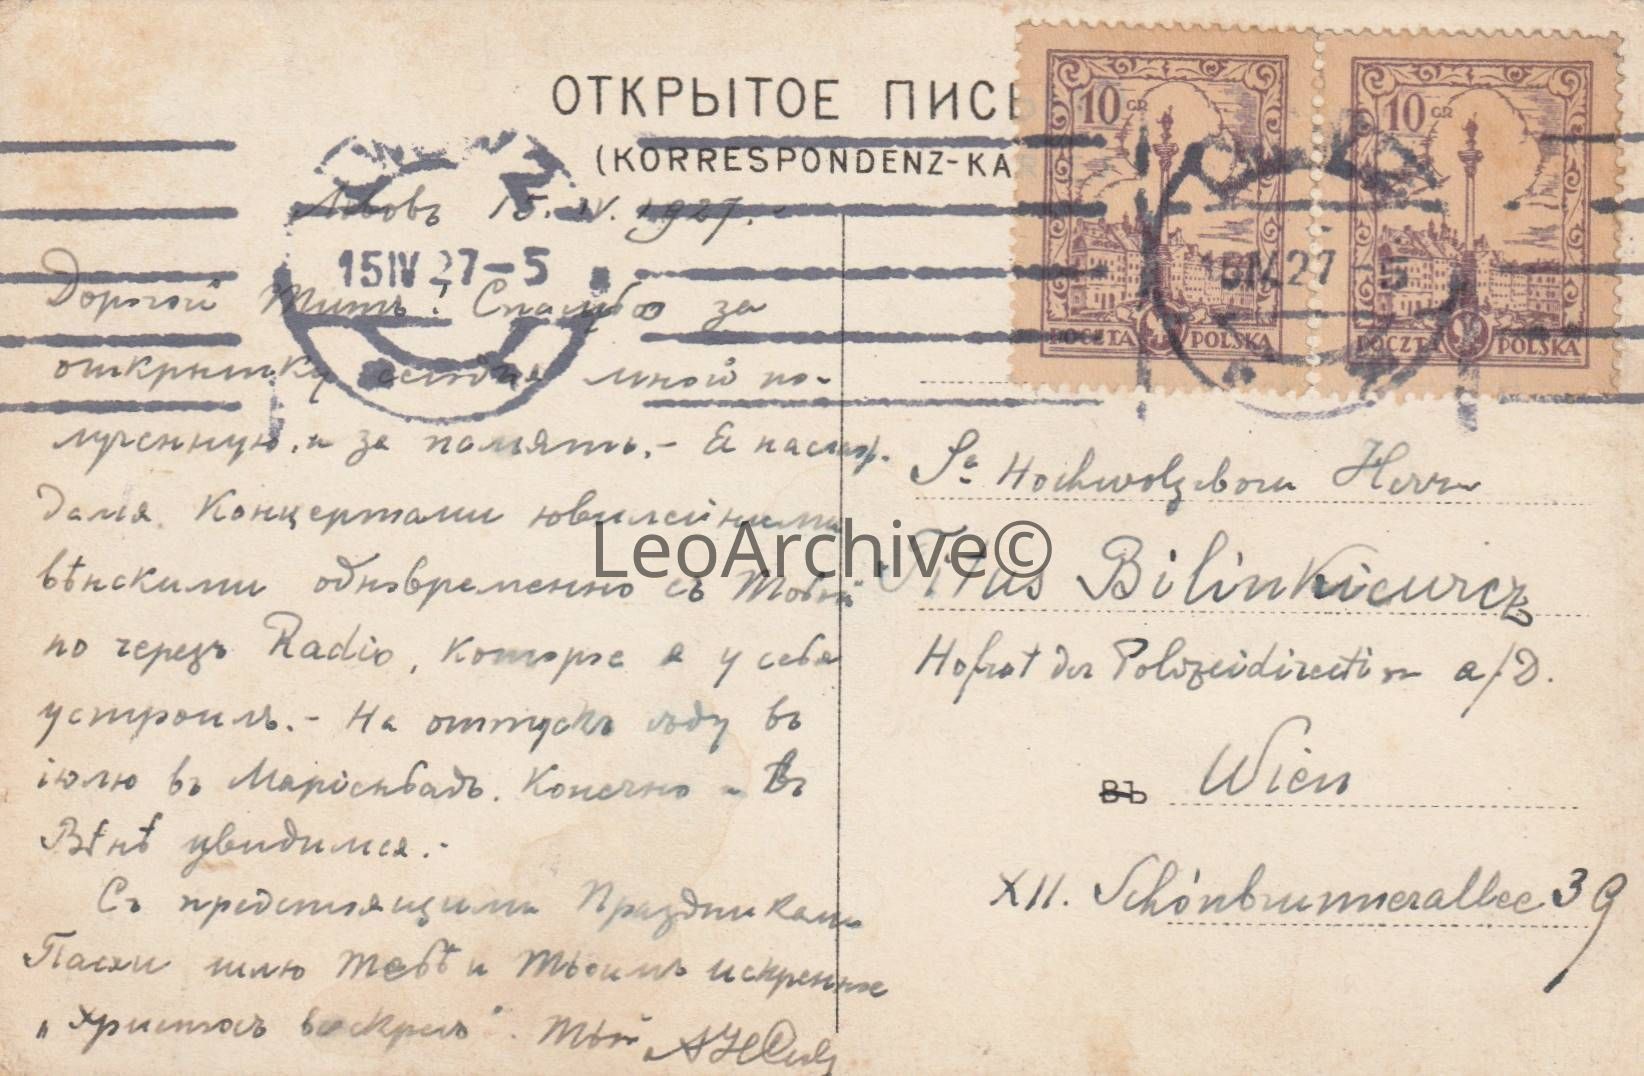 ОТКРЫТОЕ ПИСЬ
(KORRESPONDENZ-KA
10 GR
10 GR
POCZTA POLSKA
POCZTA POLSKA
15 IV 27-5
15 IV 27 5
Львовъ 15. IV. 1927.-
Дорогой Титъ! Спасибо за
открытку сегодня мной по-
лученную, и за память.- Я наслаж-
дался концертами ювилейными
вѣнскими одновременно съ Тобой
но черезъ Radio, которое я у себя
устроилъ.- На отпускъ ѣду въ
іюлю въ Маріенбадъ. Конечно - въ
Вѣнѣ увидимся.-
Съ предстоящими Праздниками
Пасхи шлю Тебѣ и Твоимъ искреннее
„Христосъ воскресъ". Твой
LeoArchive©
Sr Hochwolgeborn Herrn
Titus Bilinkiewicz
Hofrat der Polizeidirection a/D.
въ Wien
XII. Schönbrunnerallee 39